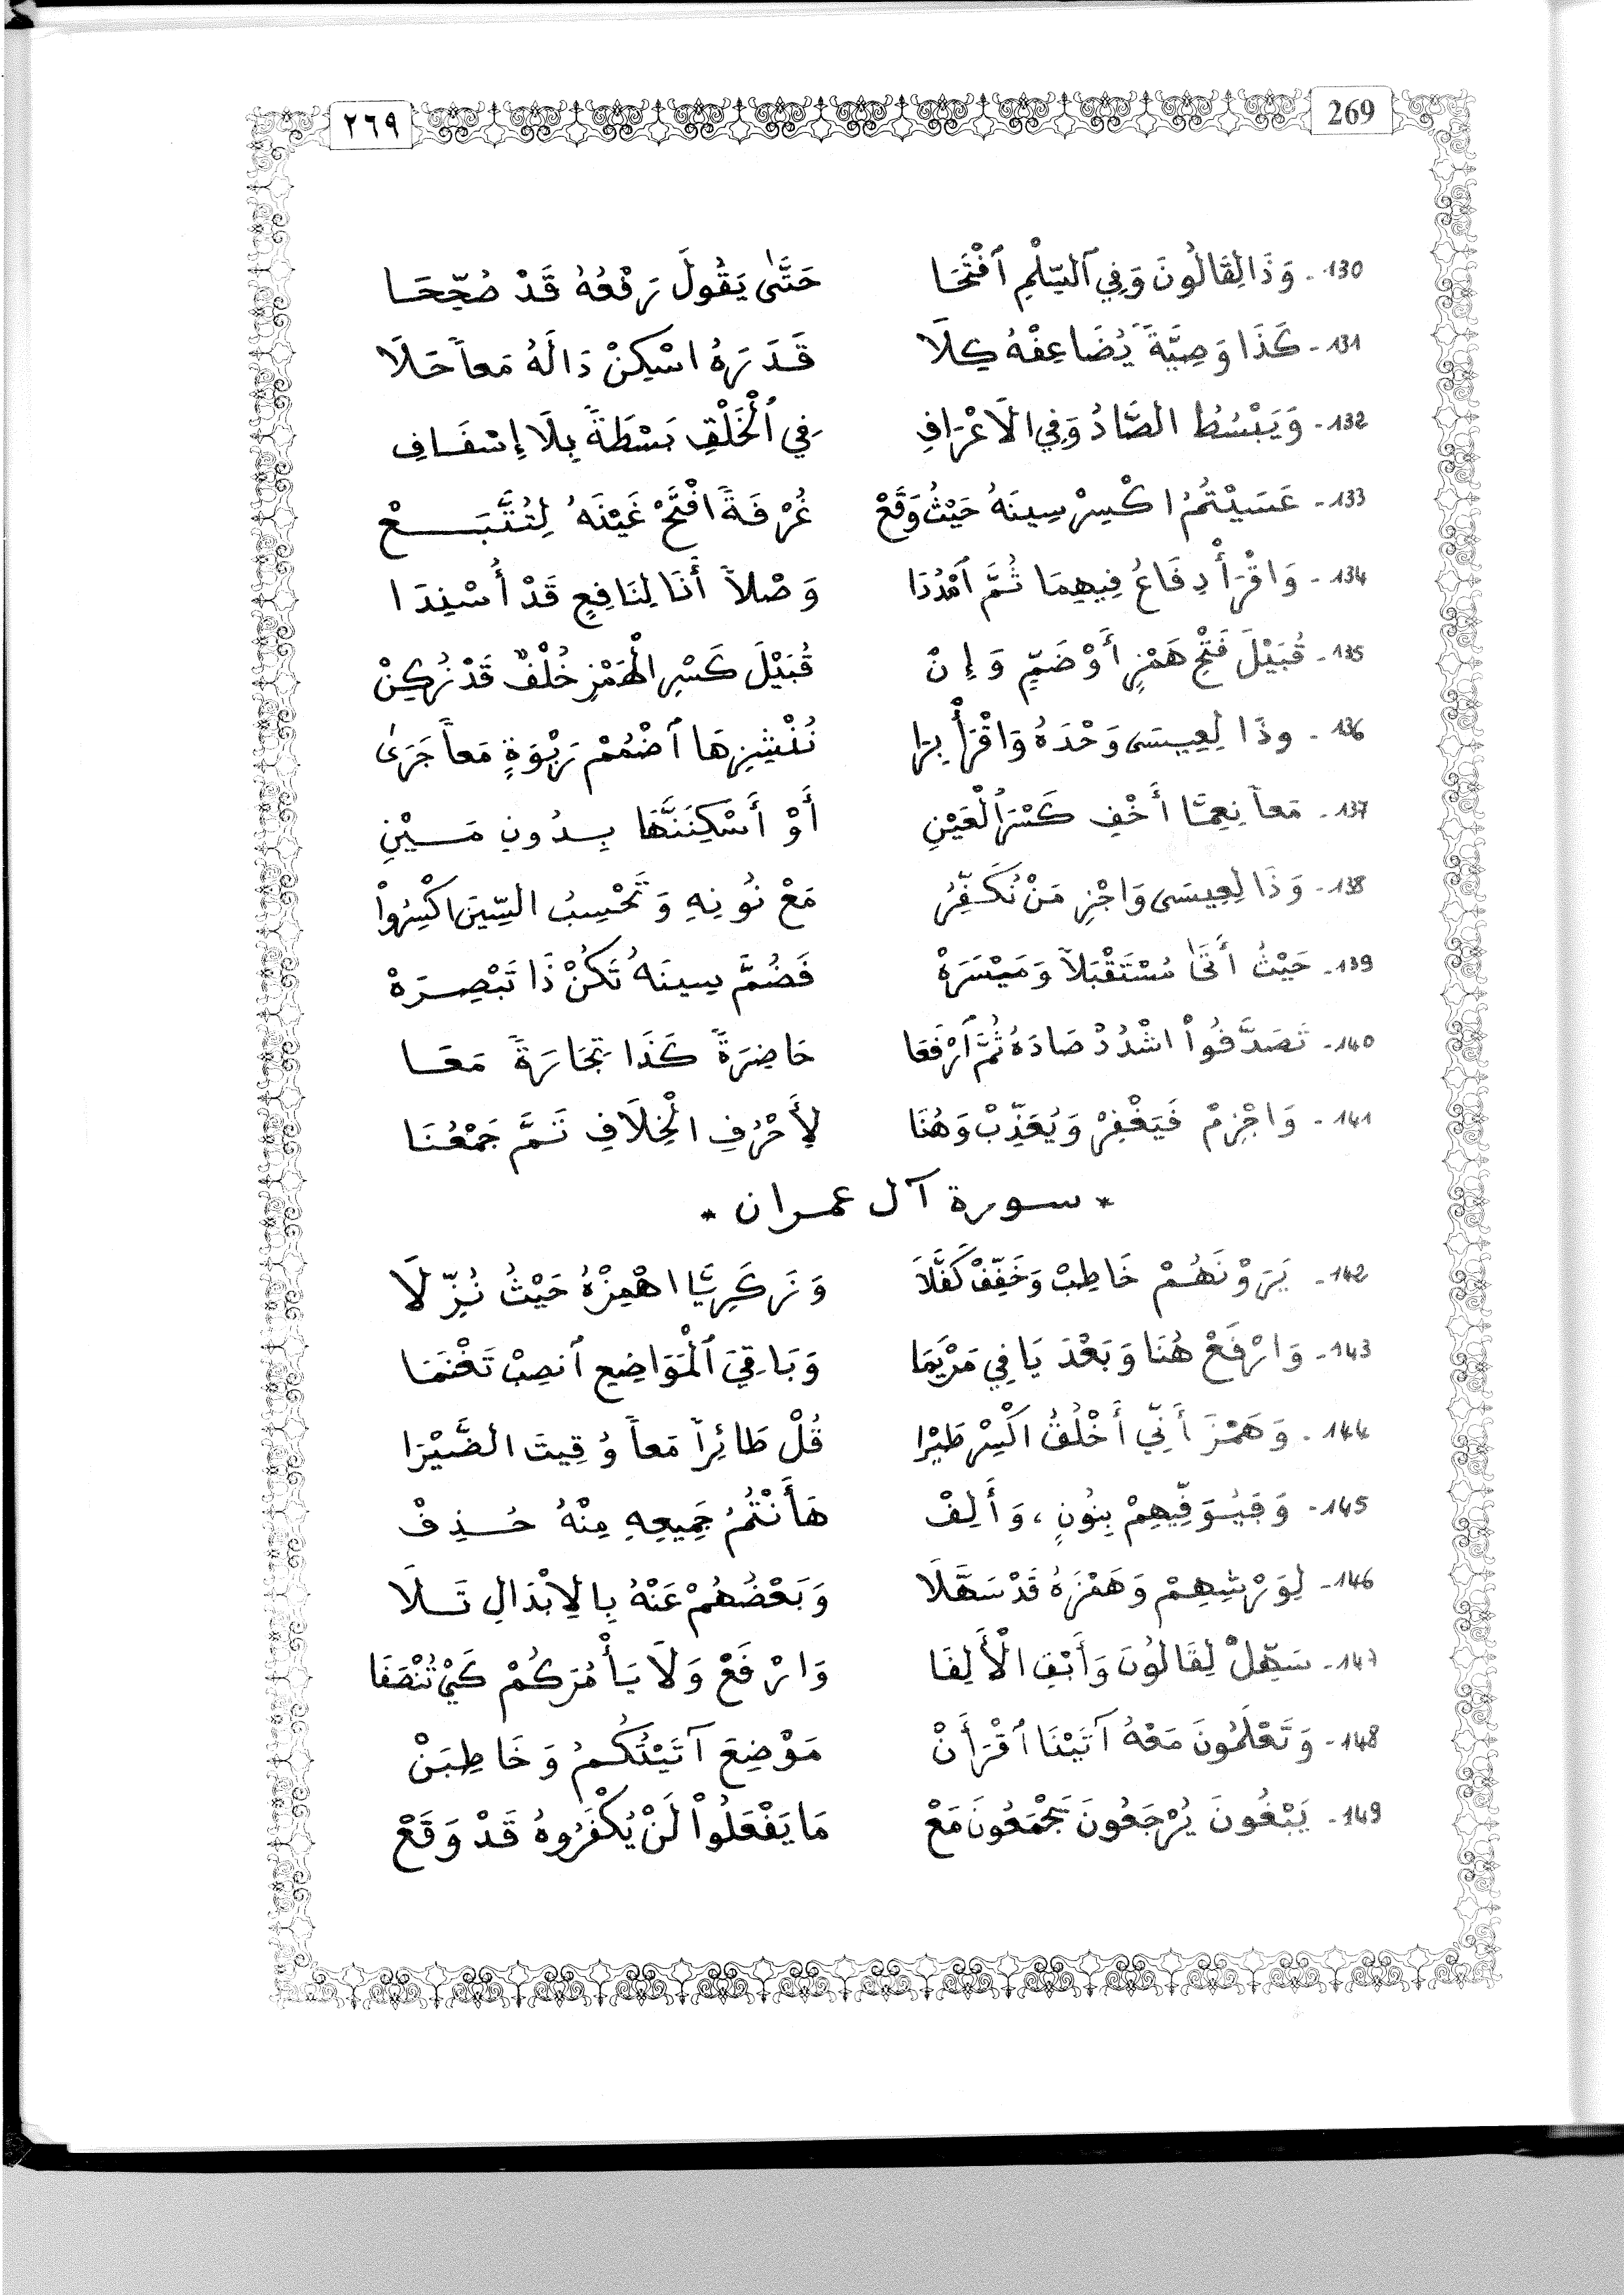 ٢٦٩ 269
130- وَذَا لِقَالُونَ وَفِي ٱلسِّلْمِ ٱفْتَحَا حَتَّىٰ يَقُولَ رَفْعُهُ قَدْ صُحِّحَا
131- كَذَا وَصِيَّةً يُضَاعِفْهُ كِلَا قَدَرُهُ اسْكِنْ دَالَهُ مَعاً حَلَا
132- وَيَبْسُطُ الصَّادُ وَفِي الَاعْرَافِ فِي ٱلْخَلْقِ بَسْطَةً بِلَا إِسْفَافِ
133- عَسَيْتُمُ اكْسِرْ سِينَهُ حَيْثُ وَقَعْ غُرْفَةً افْتَحْ غَيْنَهُ لِتُتَّبَعْ
134- وَاقْرَأْ دِفَاعُ فِيهِمَا ثُمَّ ٱمْدُدَا وَصْلاً أَنَا لِنَافِعٍ قَدْ أُسْنِدَا
135- قُبَيْلَ فَتْحِ هَمْزٍ أَوْ ضَمٍّ وَإِنْ قُبَيْلَ كَسْرِ الْهَمْزِ خُلْفٌ قَدْ زُكِنْ
136- وذَا لِعِيسَى وَحْدَهُ وَاقْرَأْ بِرَا نُنْشِزُهَا ٱضْمُمْ رَبْوَةٍ مَعاً جَرَىٰ
137- مَعاً نِعِمَّا أَخْفِ كَسْرَ ٱلْعَيْنِ أَوْ أَسْكِنَنَّهَا بِدُونِ مَيْنِ
138- وَذَا لِعِيسَى وَاجْزِمَنْ نُكَفِّرُ مَعْ نُونِهِ وَتَحْسِبُ السِّينَ اكْسِرُواْ
139- حَيْثُ أَتَىٰ مُسْتَقْبَلاً وَمَيْسَرَهْ فَضُمَّ سِينَهُ تَكُنْ ذَا تَبْصِرَهْ
140- تَصَدَّقُواْ اشْدُدْ صَادَهُ ثُمَّ ٱرْفَعَا حَاضِرَةً كَذَا تِجَارَةً مَعَا
141- وَاجْزِمْ فَيَغْفِرْ وَيُعَذِّبْ وَهُنَا لِأَحْرُفِ الْخِلَافِ تَمَّ جَمْعُنَا
* سورة آل عمران *
142- يَرَوْنَهُمْ خَاطِبْ وَخَفِّفْ كَفَّلَا وَزَكَرِيَّا اهْمِزْهُ حَيْثُ نُزِّلَا
143- وَارْفَعْ هُنَا وَبَعْدَ يَا فِي مَرْيَمَا وَبَاقِيَ ٱلْمَوَاضِعِ ٱنصِبْ تَغْنَمَا
144- وَهَمْزَ أَنِّي أَخْلُقُ اكْسِرْ طَيْرَا قُلْ طَائِراً مَعاً وُقِيتَ الضَّيْرَا
145- وَفِيُوَفِّيهِمْ بِنُونٍ، وَأَلِفْ هَأَنْتُمُ جَمِيعِهِ مِنْهُ حُذِفْ
146- لِوَرْشِهِمْ وَهَمْزَهُ قَدْ سَهَّلَا وَبَعْضُهُمْ عَنْهُ بِالِابْدَالِ تَلَا
147- سَهِّلْ لِقَالُونَ وَأَبْقِ الْأَلِفَا وَارْفَعْ وَلَا يَأْمُرَكُمْ كَيْ تُنْصَفَا
148- وَتَعْلَمُونَ مَعْهُ آتَيْنَا ٱقْرَأَنْ مَوْضِعَ آتَيْتُكُمُ وَخَاطِبَنْ
149- يَبْغُونَ يُرْجَعُونَ يَجْمَعُونَ مَعْ مَا يَفْعَلُواْ لَنْ يُكْفَرُوهُ قَدْ وَقَعْ